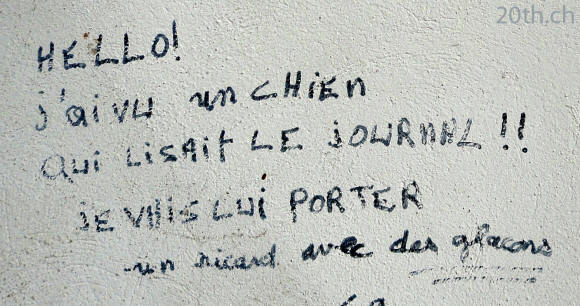 20th.ch
HELLO!
j'ai vu un CHiEN
Qui LiSAit LE JOURNAL !!
JE VAIS LUi PORTER
un ricard avec des glacons